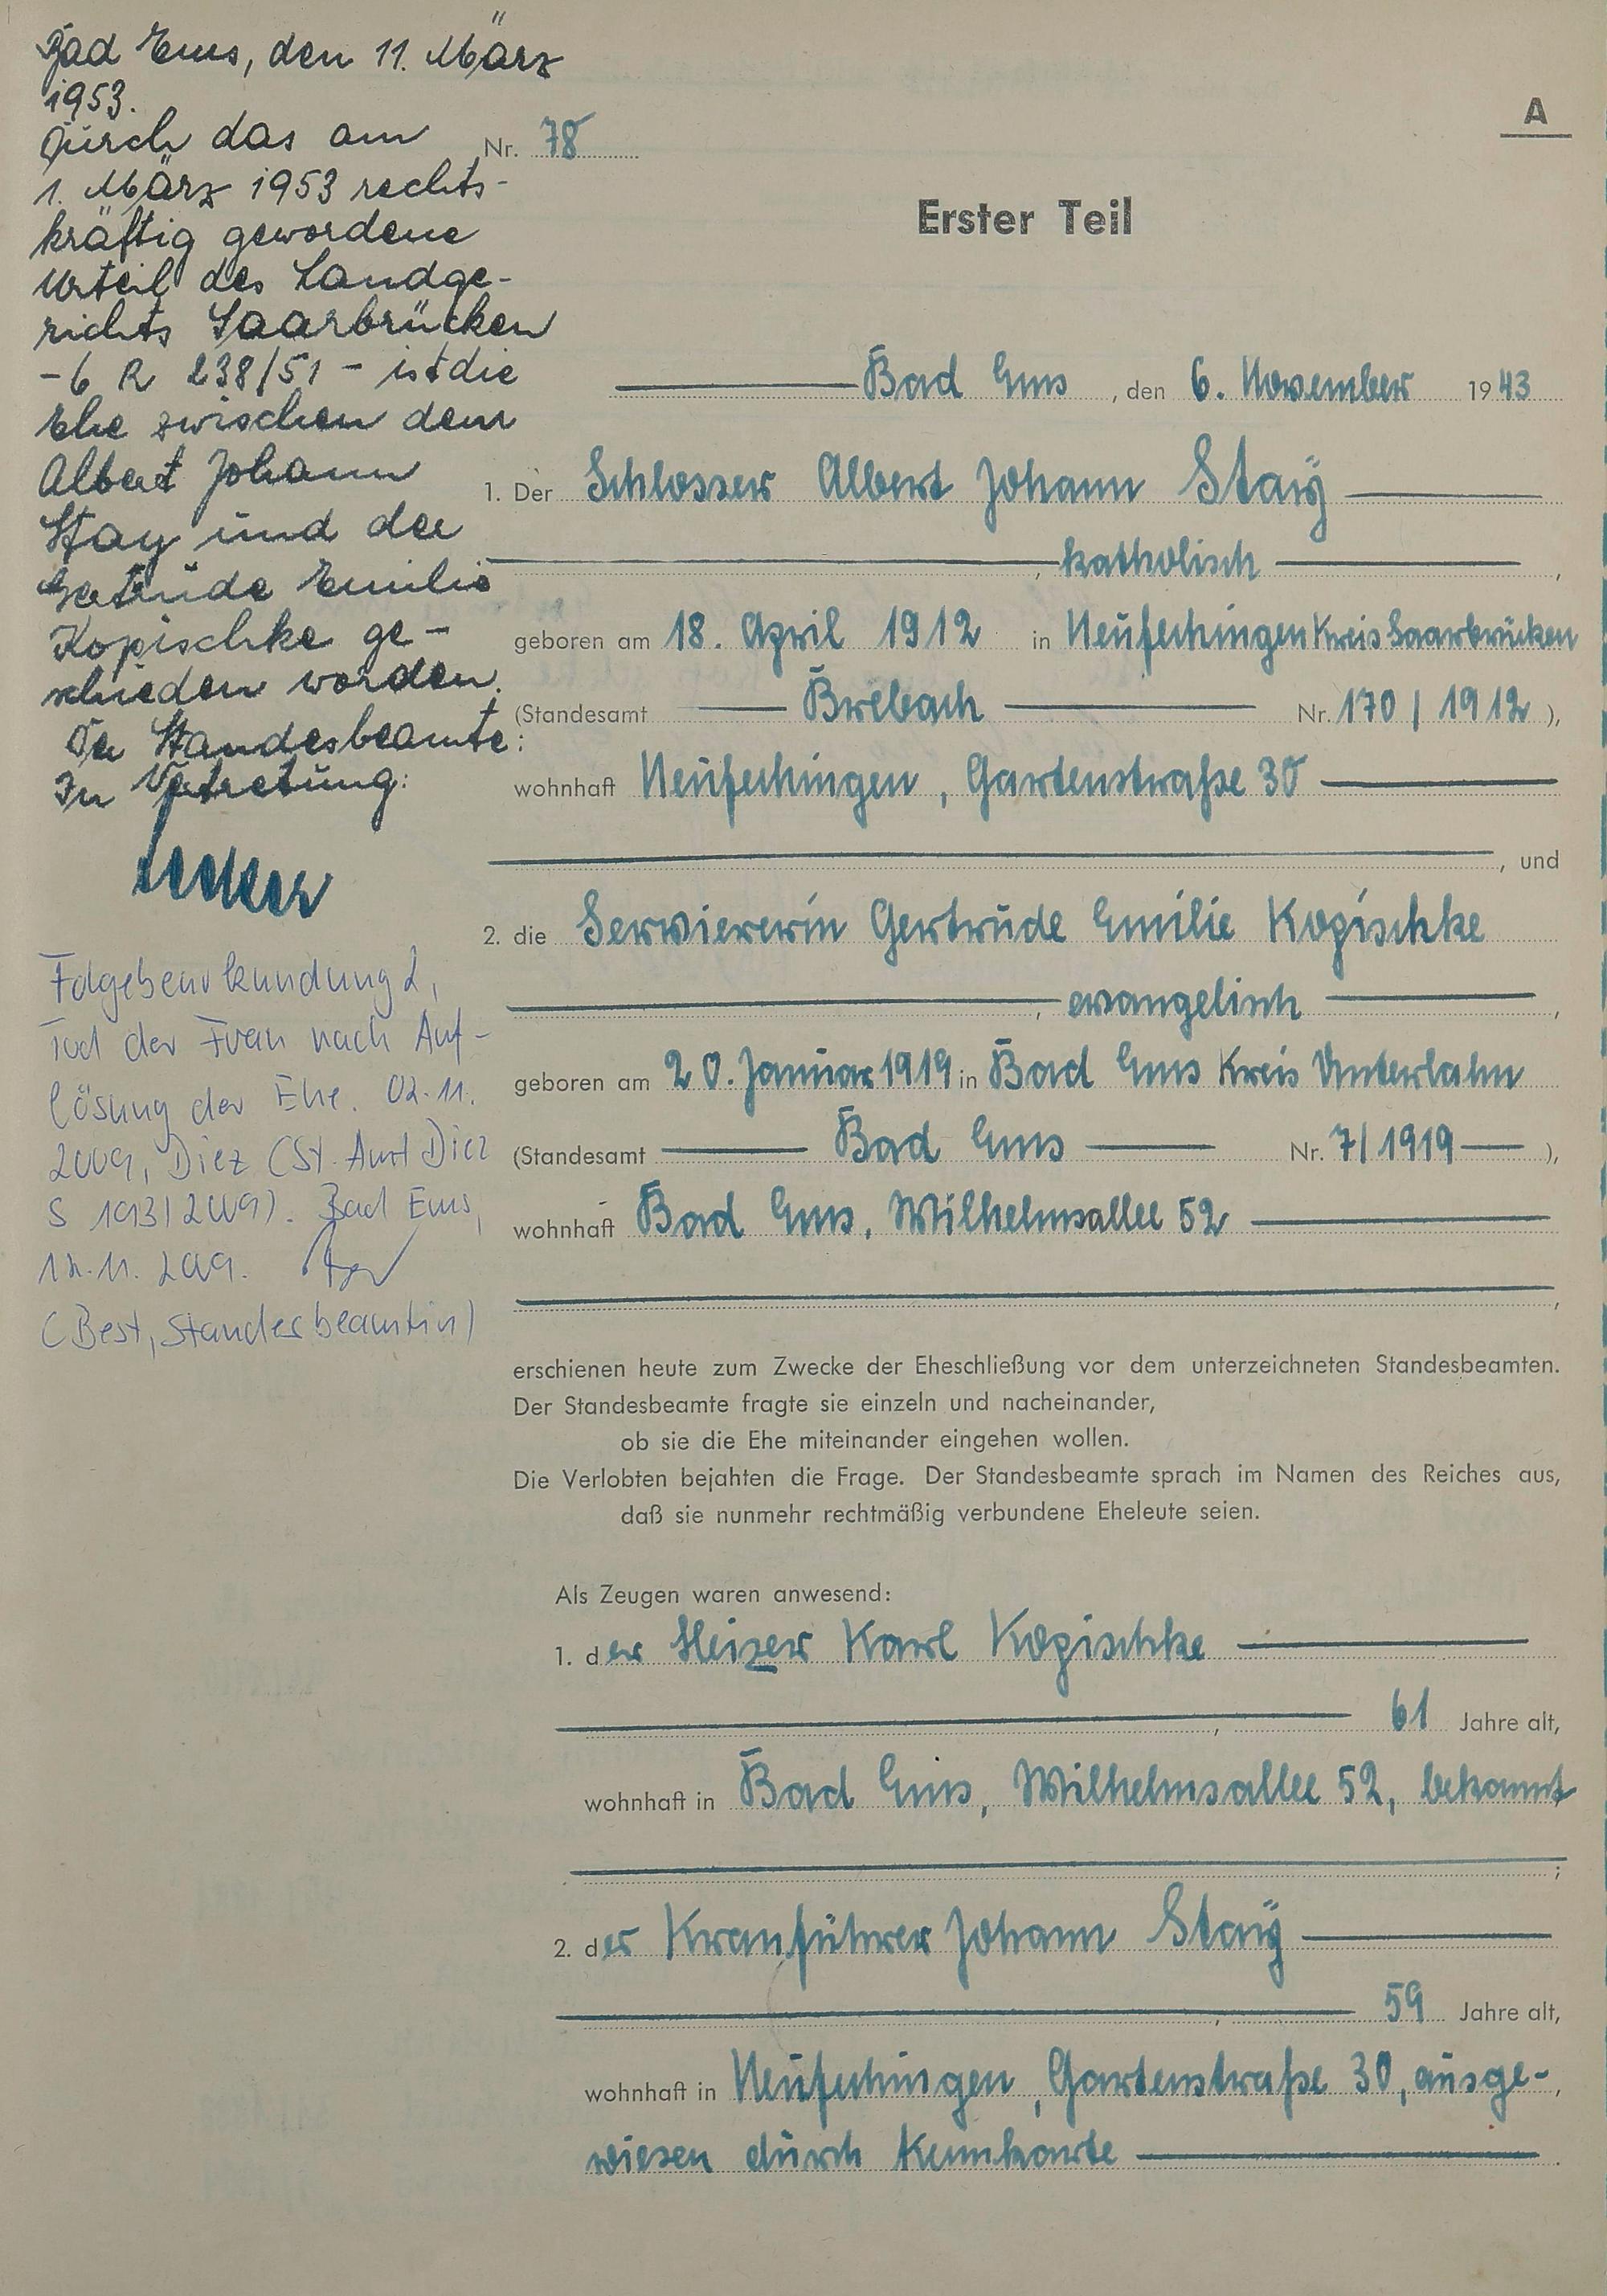 Bad Ems, den 11. März
1953.
Durch das am
1. März 1953 rechts-
kräftig gewordene
Urteil des Landge-
richts Saarbrücken
- 6 R 238/51 - ist die
Ehe zwischen dem
Albert Johann
Stay und der
Gertrude Emilie
Kopischke ge-
schieden worden.
Der Standesbeamte:
In Vertretung:
Folgebeurkundung 2,
Tod der Frau nach Auf-
lösung der Ehe. 02.11.
2009, Diez (St. Amt Diez
S 193/2009). Bad Ems,
12.11.2009.
(Best, Standesbeamtin)
A
Nr. 78
Erster Teil
Bad Ems, den 6. November 1943
1. Der Schlosser Albert Johann Staÿ
, katholisch,
geboren am 18. April 1912 in Neufechingen Kreis Saarbrücken
(Standesamt Brebach Nr. 170/1912),
wohnhaft Neufechingen, Gartenstraße 30
, und
2. die Serviererin Gertrude Emilie Kopischke
, evangelisch,
geboren am 20. Januar 1919 in Bad Ems Kreis Unterlahn
(Standesamt Bad Ems Nr. 7/1919),
wohnhaft Bad Ems, Wilhelmsallee 52
,
erschienen heute zum Zwecke der Eheschließung vor dem unterzeichneten Standesbeamten.
Der Standesbeamte fragte sie einzeln und nacheinander,
ob sie die Ehe miteinander eingehen wollen.
Die Verlobten bejahten die Frage. Der Standesbeamte sprach im Namen des Reiches aus,
daß sie nunmehr rechtmäßig verbundene Eheleute seien.
Als Zeugen waren anwesend:
1. der Heizer Karl Kopischke
, 61 Jahre alt,
wohnhaft in Bad Ems, Wilhelmsallee 52, bekannt
;
2. der Kranführer Johann Staÿ
, 59 Jahre alt,
wohnhaft in Neufechingen, Gartenstraße 30, ausge-,
wiesen durch Kennkarte.